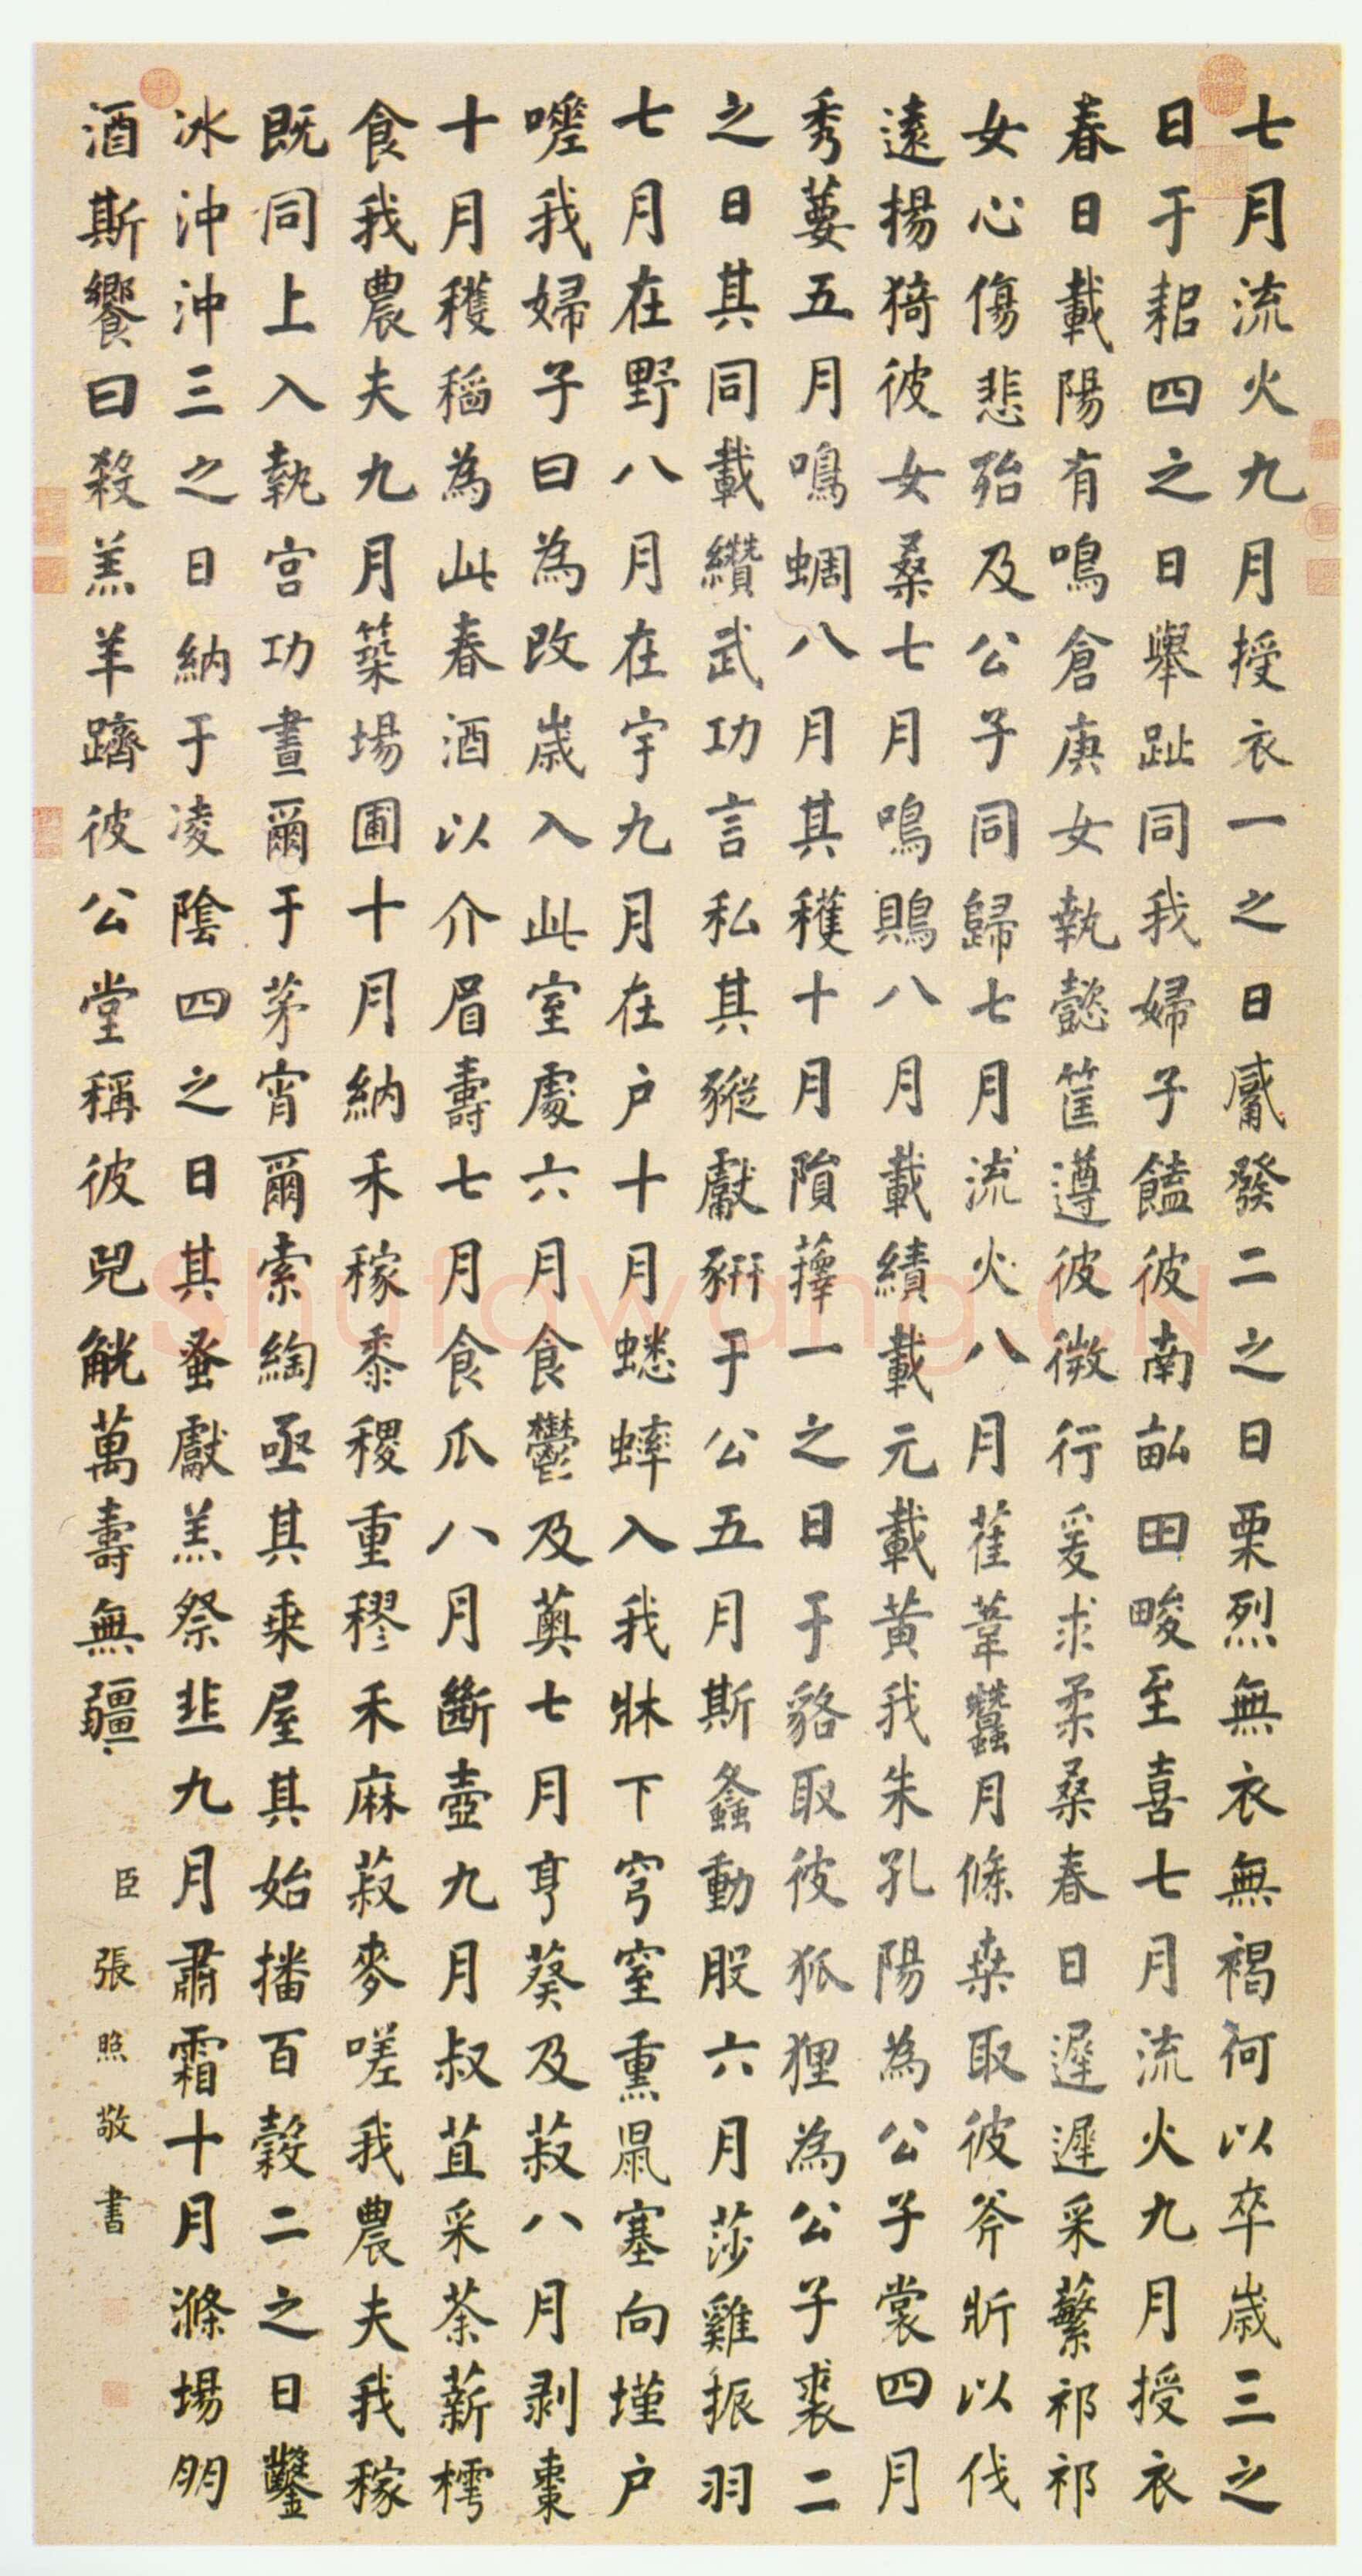 七月流火九月授衣一之日觱發二之日栗烈無衣無褐何以卒歲三之
日于耜四之日舉趾同我婦子饁彼南畝田畯至喜七月流火九月授衣
春日載陽有鳴倉庚女執懿筐遵彼微行爰求柔桑春日遲遲采蘩祁祁
女心傷悲殆及公子同歸七月流火八月萑葦蠶月條桑取彼斧斨以伐
遠揚猗彼女桑七月鳴鵙八月載績載元載黃我朱孔陽為公子裳四月
秀葽五月鳴蜩八月其穫十月隕蘀一之日于貉取彼狐狸為公子裘二
之日其同載纘武功言私其豵獻豜于公五月斯螽動股六月莎雞振羽
七月在野八月在宇九月在户十月蟋蟀入我牀下穹窒熏鼠塞向墐户
嗟我婦子曰為改歲入此室處六月食鬱及薁七月亨葵及菽八月剥棗
十月穫稻為此春酒以介眉壽七月食瓜八月斷壺九月叔苴采荼薪樗
食我農夫九月築場圃十月納禾稼黍稷重穋禾麻菽麥嗟我農夫我稼
既同上入執宮功晝爾于茅宵爾索綯亟其乘屋其始播百穀二之日鑿
冰沖沖三之日納于凌陰四之日其蚤獻羔祭韭九月肅霜十月滌場朋
酒斯饗曰殺羔羊躋彼公堂稱彼兕觥萬壽無疆
臣張照敬書
Shufawang.CN